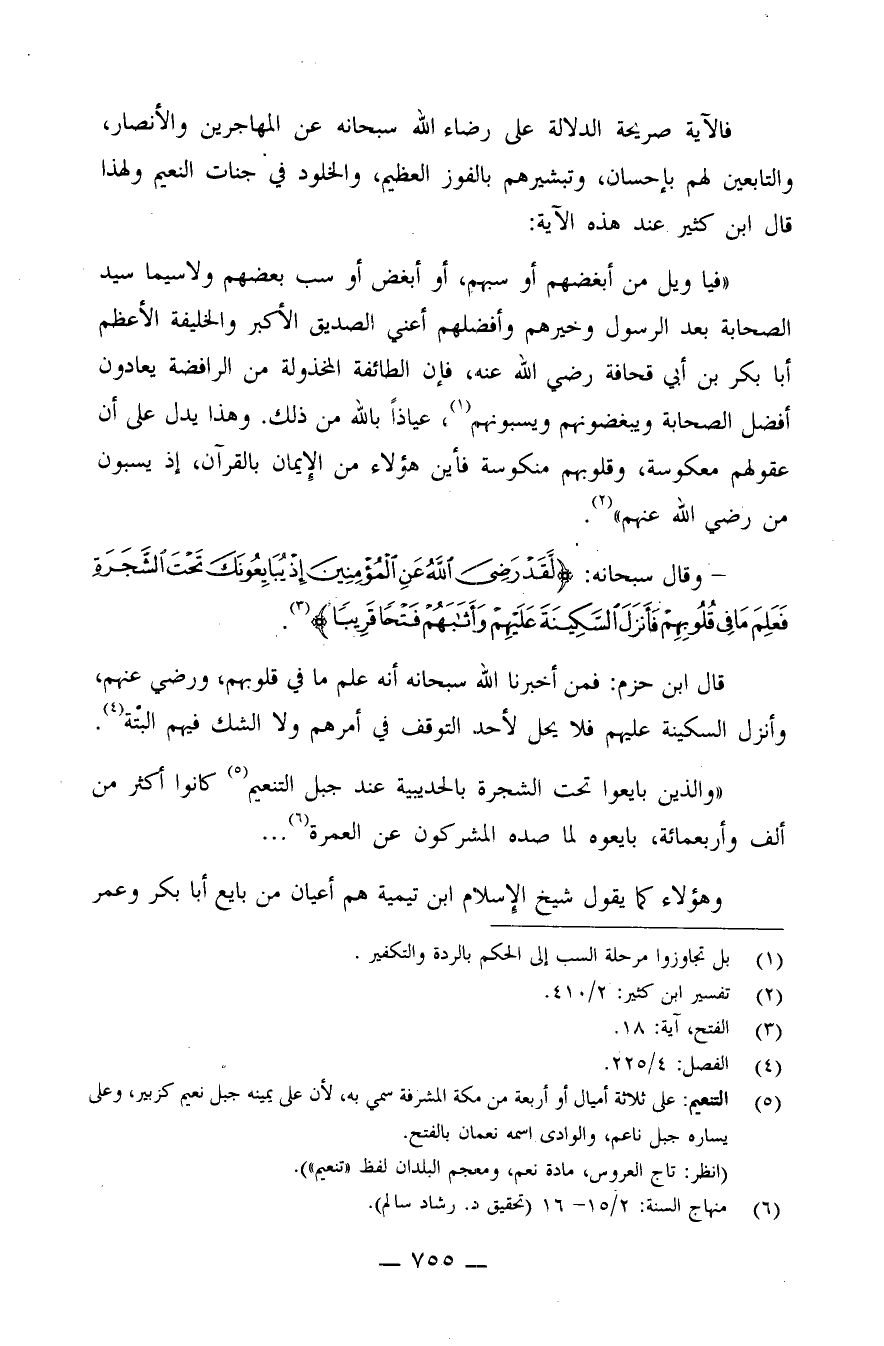 فالآية صريحة الدلالة على رضاء الله سبحانه عن المهاجرين والأنصار،
والتابعين لهم بإحسان، وتبشيرهم بالفوز العظيم، والخلود في جنات النعيم ولهذا
قال ابن كثير عند هذه الآية:
«فيا ويل من أبغضهم أو سبهم، أو أبغض أو سب بعضهم ولاسيما سيد
الصحابة بعد الرسول وخيرهم وأفضلهم أعني الصديق الأكبر والخليفة الأعظم
أبا بكر بن أبي قحافة رضي الله عنه، فإن الطائفة المخذولة من الرافضة يعادون
أفضل الصحابة ويبغضونهم ويسبونهم(١)، عياذاً بالله من ذلك. وهذا يدل على أن
عقولهم معكوسة، وقلوبهم منكوسة فأين هؤلاء من الإيمان بالقرآن، إذ يسبون
من رضي الله عنهم»(٢).
– وقال سبحانه: ﴿لَّقَدْ رَضِيَ ٱللَّهُ عَنِ ٱلْمُؤْمِنِينَ إِذْ يُبَايِعُونَكَ تَحْتَ ٱلشَّجَرَةِ
فَعَلِمَ مَا فِي قُلُوبِهِمْ فَأَنزَلَ ٱلسَّكِينَةَ عَلَيْهِمْ وَأَثَٰبَهُمْ فَتْحًا قَرِيبًا﴾(٣).
قال ابن حزم: فمن أخبرنا الله سبحانه أنه علم ما في قلوبهم، ورضي عنهم،
وأنزل السكينة عليهم فلا يحل لأحد التوقف في أمرهم ولا الشك فيهم البتْة(٤).
«والذين بايعوا تحت الشجرة بالحديبية عند جبل التنعيم(٥) كانوا أكثر من
ألف وأربعمائة، بايعوه لما صده المشركون عن العمرة(٦)...
وهؤلاء كما يقول شيخ الإسلام ابن تيمية هم أعيان من بايع أبا بكر وعمر
(١) بل تجاوزوا مرحلة السب إلى الحكم بالردة والتكفير .
(٢) تفسير ابن كثير: ٤١٠/٢.
(٣) الفتح، آية: ١٨.
(٤) الفصل: ٢٢٥/٤.
(٥) التنعيم: على ثلاثة أميال أو أربعة من مكة المشرفة سمي به، لأن على يمينه جبل نعيم كزبير، وعلى
يساره جبل ناعم، والوادى اسمه نعمان بالفتح.
(انظر: تاج العروس، مادة نعم، ومعجم البلدان لفظ «تنعيم»).
(٦) منهاج السنة: ١٥/٢– ١٦ (تحقيق د. رشاد سالم).
— ٧٥٥ —